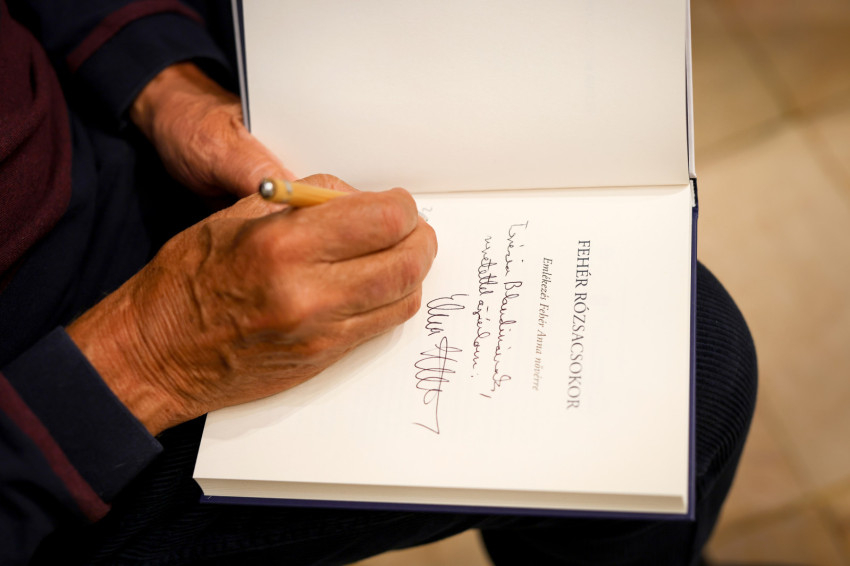 FEHÉR RÓZSACSOKOR
Emlékezés Fehér Anna nővérre
Terézia Blandinának,
szeretettel ajánlom: